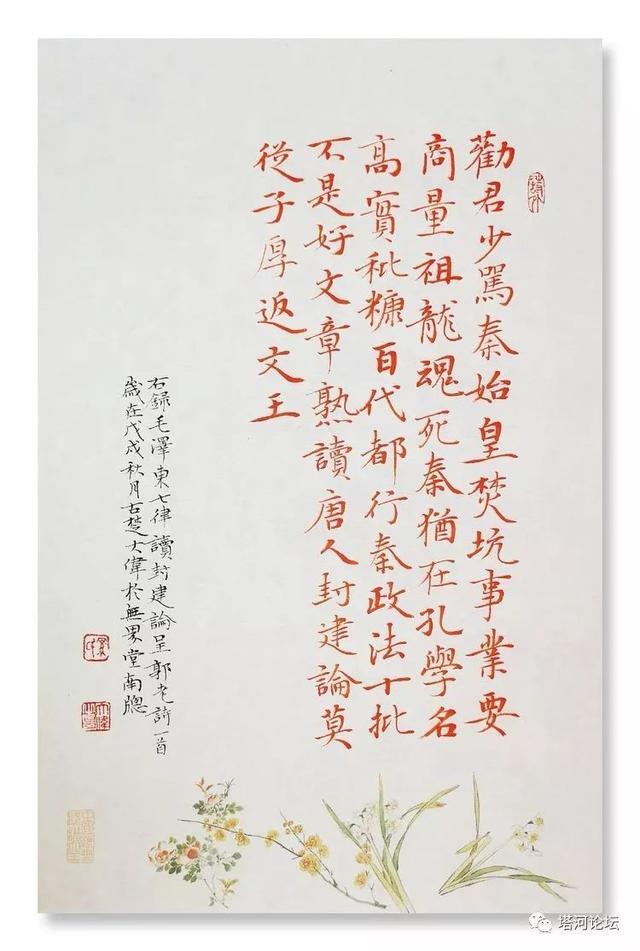 勸君少罵秦始皇焚坑事業要
商量祖龍魂死秦猶在孔學名
高實秕糠百代都行秦政法十批
不是好文章熟讀唐人封建論莫
從子厚返文王
右錄毛澤東七律讀封建論呈郭老詩一首
歲在戊戌秋月古楚大偉於無界堂南牕
塔河论坛